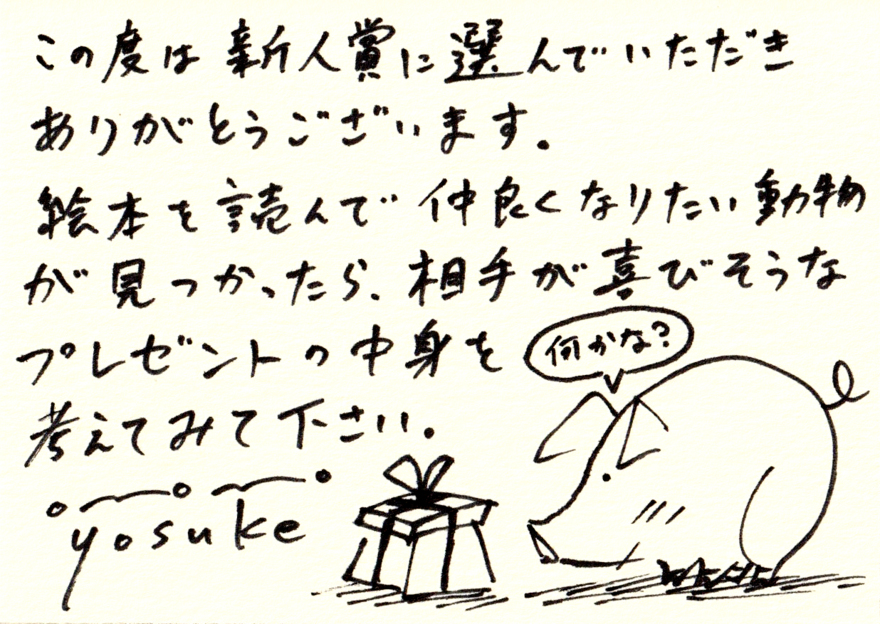 この度は新人賞に選んでいただき
ありがとうございます。
絵本を読んで仲良くなりたい動物
が見つかったら、相手が喜びそうな
プレゼントの中身を
何かな？
考えてみて下さい。
yosuke